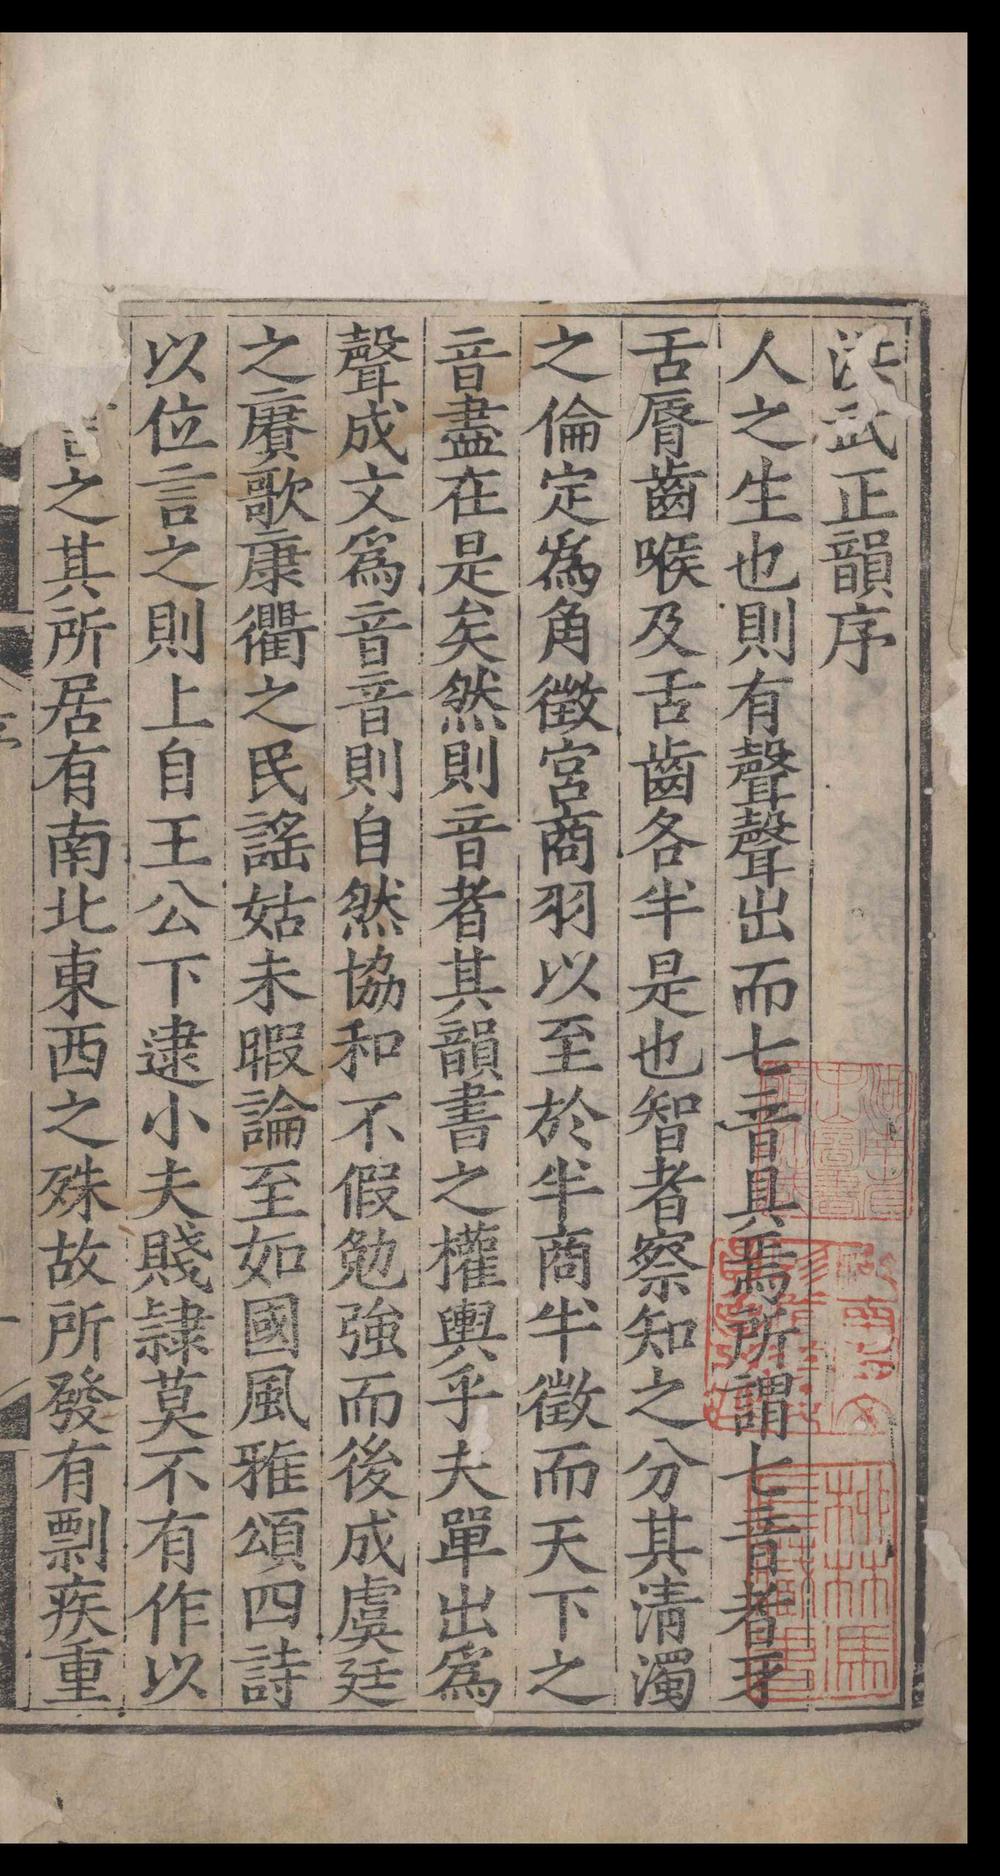 洪武正韻序
人之生也則有聲聲出而七音具焉所謂七音者牙
舌脣齒喉及舌齒各半是也智者察知之分其清濁
之倫定為角徵宮商羽以至於半商半徵而天下之
音盡在是矣然則音者其韻書之權輿乎夫單出爲
聲成文爲音音則自然協和不假勉強而後成虞廷
之賡歌康衢之民謠姑未暇論至如國風雅頌四詩
以位言之則上自王公下逮小夫賤隷莫不有作以
之其所居有南北東西之殊故所發有剽疾重